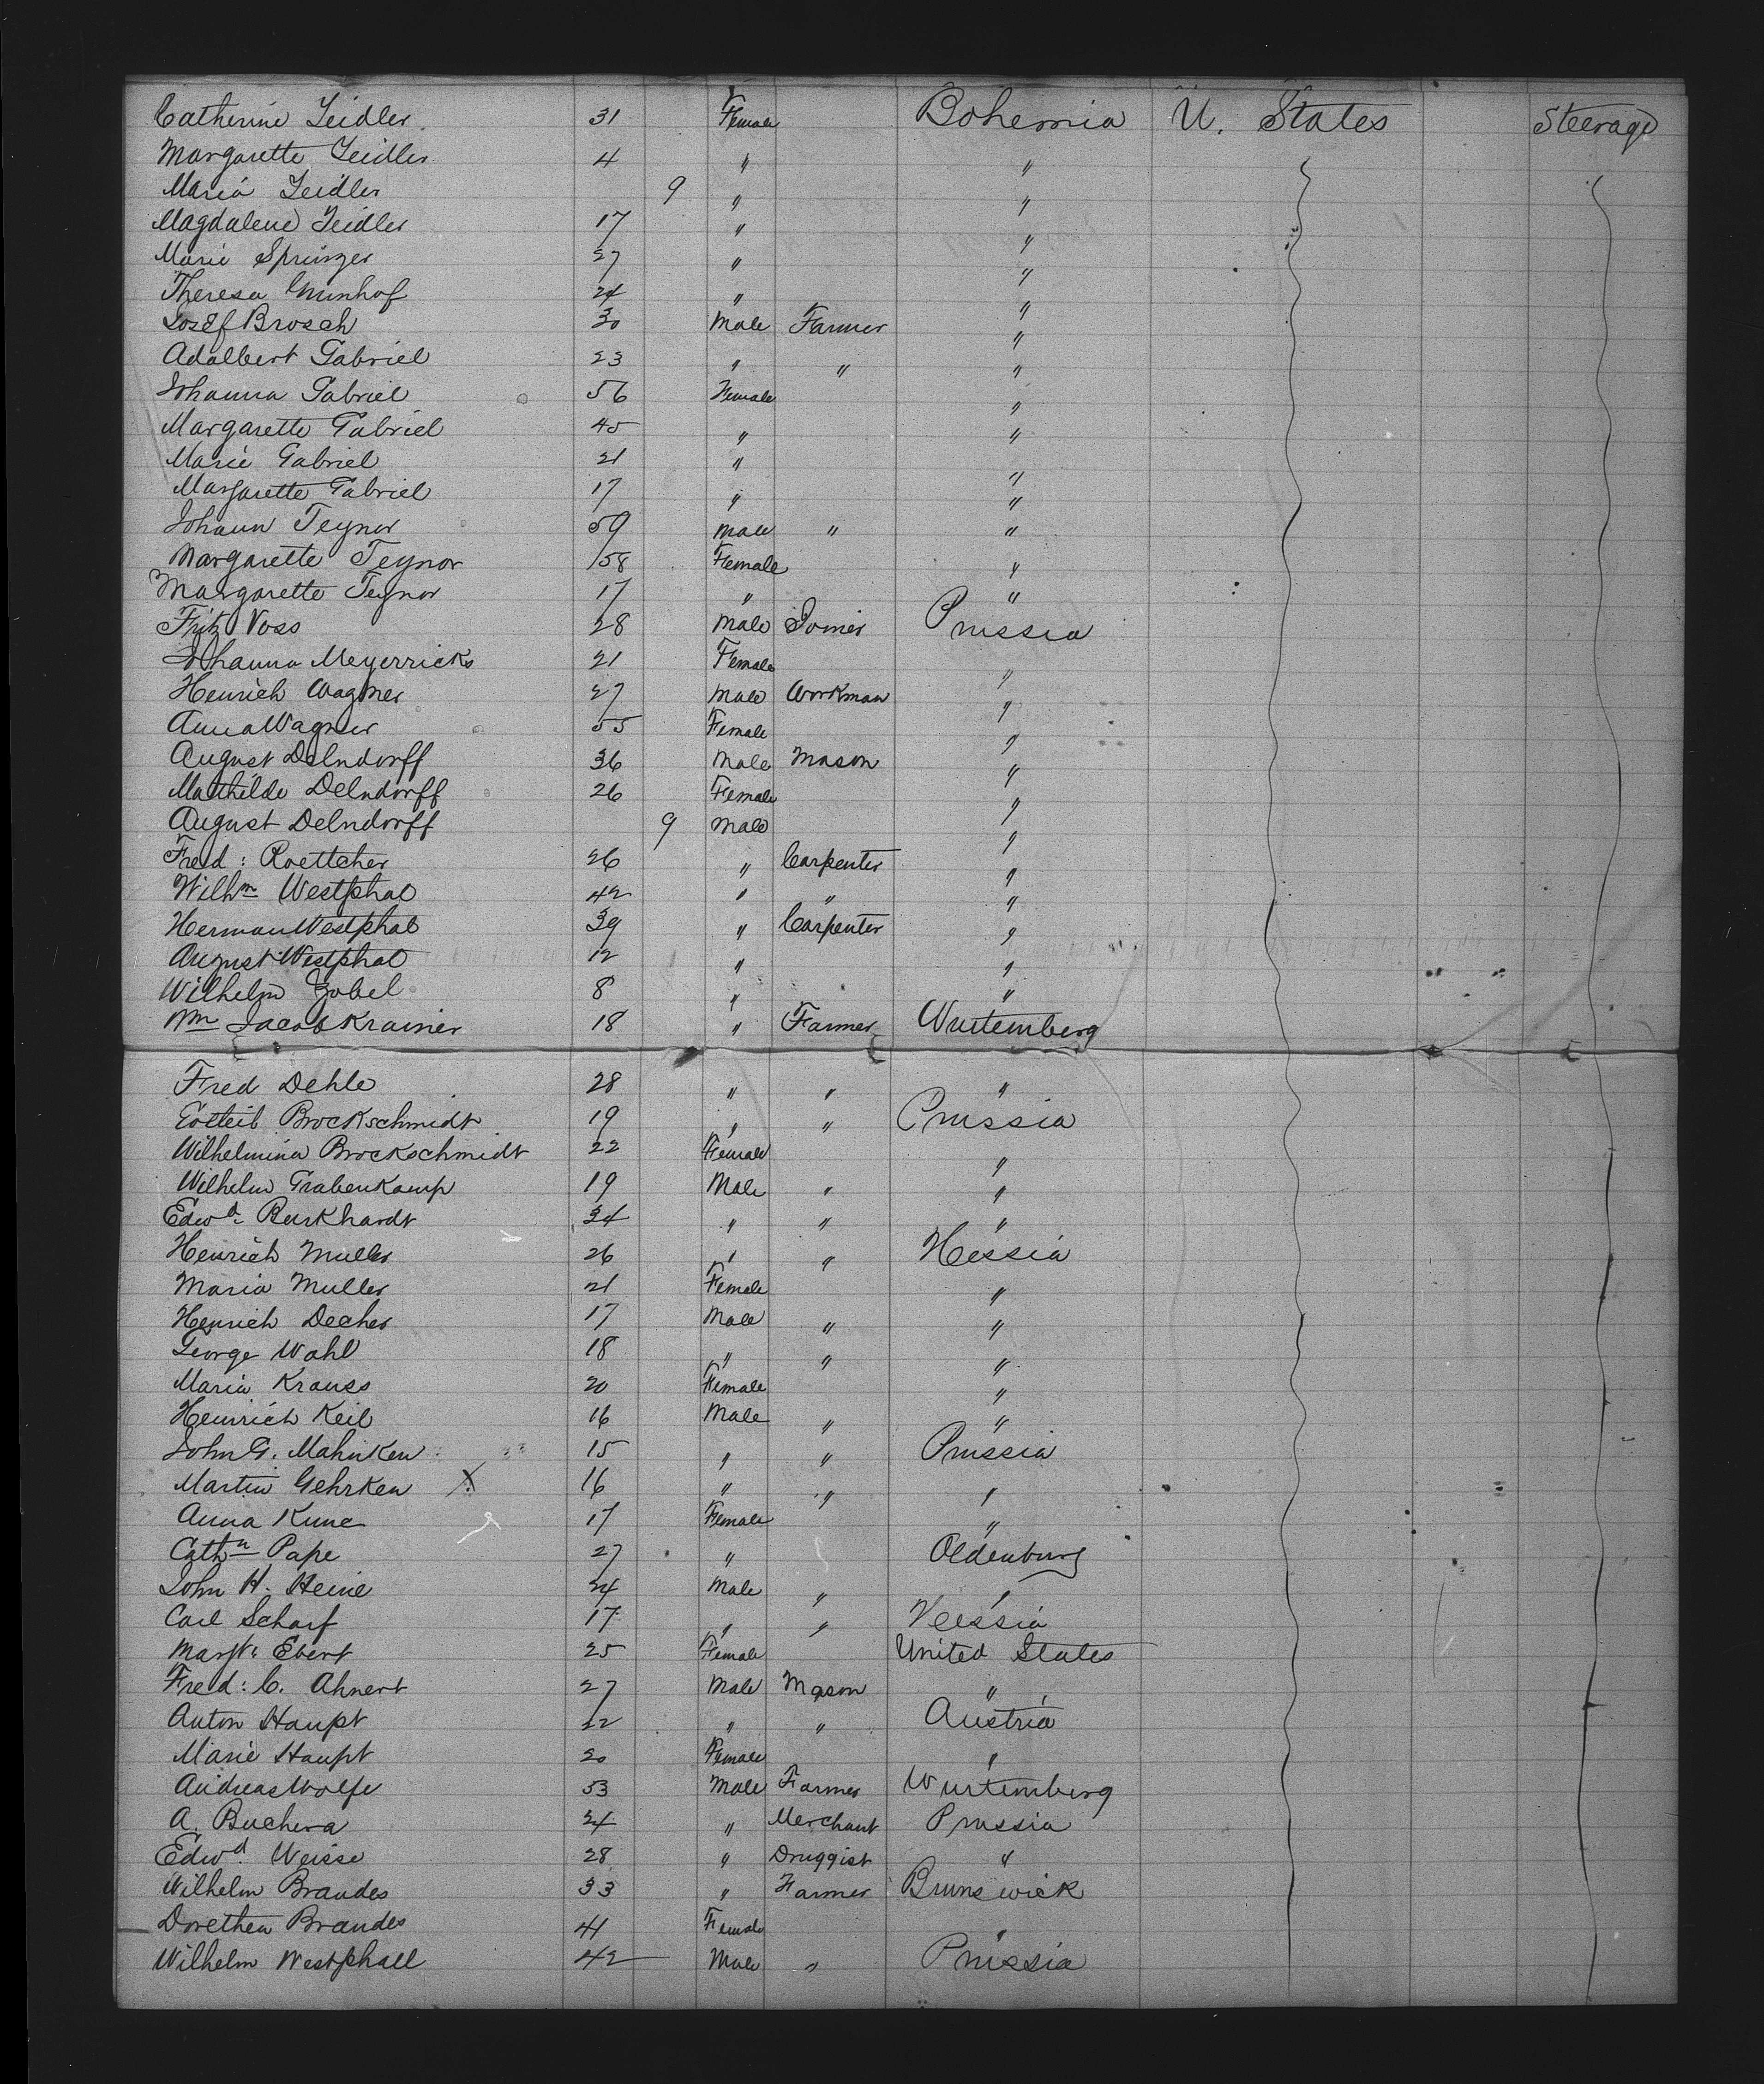 Catherine Zeidler 31 Female Bohemia U. States Steerage
Margarette Zeidler 4 " "
Maria Zeidler 9 " "
Magdalene Zeidler 17 " "
Marie Springer 27 " "
Theresa Grunhof 24 " "
Josef Brosch 30 Male Farmer "
Adalbert Gabriel 23 " " "
Johanna Gabriel 56 Female "
Margarette Gabriel 45 " "
Marie Gabriel 21 " "
Margarette Gabriel 17 " "
Johann Teynor 59 Male " "
Margarette Teynor 58 Female "
Margarette Teynor 17 " "
Fritz Voss 28 Male Joiner Prussia
Johanna Meyerricks 21 Female "
Henrich Wagner 27 Male Workman "
Anna Wagner 55 Female "
August Delndorff 36 Male Mason "
Mathilde Delndorff 26 Female "
August Delndorff 9 Male "
Fred: Roettcher 26 " Carpenter "
Wilhm Westphal 42 " " "
Herman Westphal 39 " Carpenter "
August Westphal 12 " "
Wilhelm Zobel 8 " "
Wm Jacob Kramer 18 " Farmer Wurtemberg
Fred Dehle 28 " " "
Gottleib Brockschmidt 19 " " Prussia
Wilhelmina Brockschmidt 22 Female "
Wilhelm Grabenkamp 19 Male " "
Edwd Burkhardt 34 " " "
Henrich Muller 26 " " Hessia
Maria Muller 21 Female "
Henrich Decher 17 Male " "
George Wahl 18 " " "
Maria Krauss 20 Female "
Heinrich Keil 16 Male " "
John G. Mahnken 15 " " Prussia
Martin Gehrken X 16 " " "
Anna Kune 17 Female "
Cathn Pape 27 " Oldenburg
John H. Heine 24 Male " "
Carl Scharf 17 " " Hessia
Margt: Ebert 25 Female United States
Fred: C. Ahnert 27 Male Mason "
Anton Haupt 22 " " Austria
Marie Haupt 20 Female "
Andreas Wolfe 53 Male Farmer Wurtemberg
A. Buchera 24 " Merchant Prussia
Edwd Weisse 28 " Druggist "
Wilhelm Brandes 33 " Farmer Brunswick
Dorethea Brandes 41 Female "
Wilhelm Westphall 42 Male " Prussia